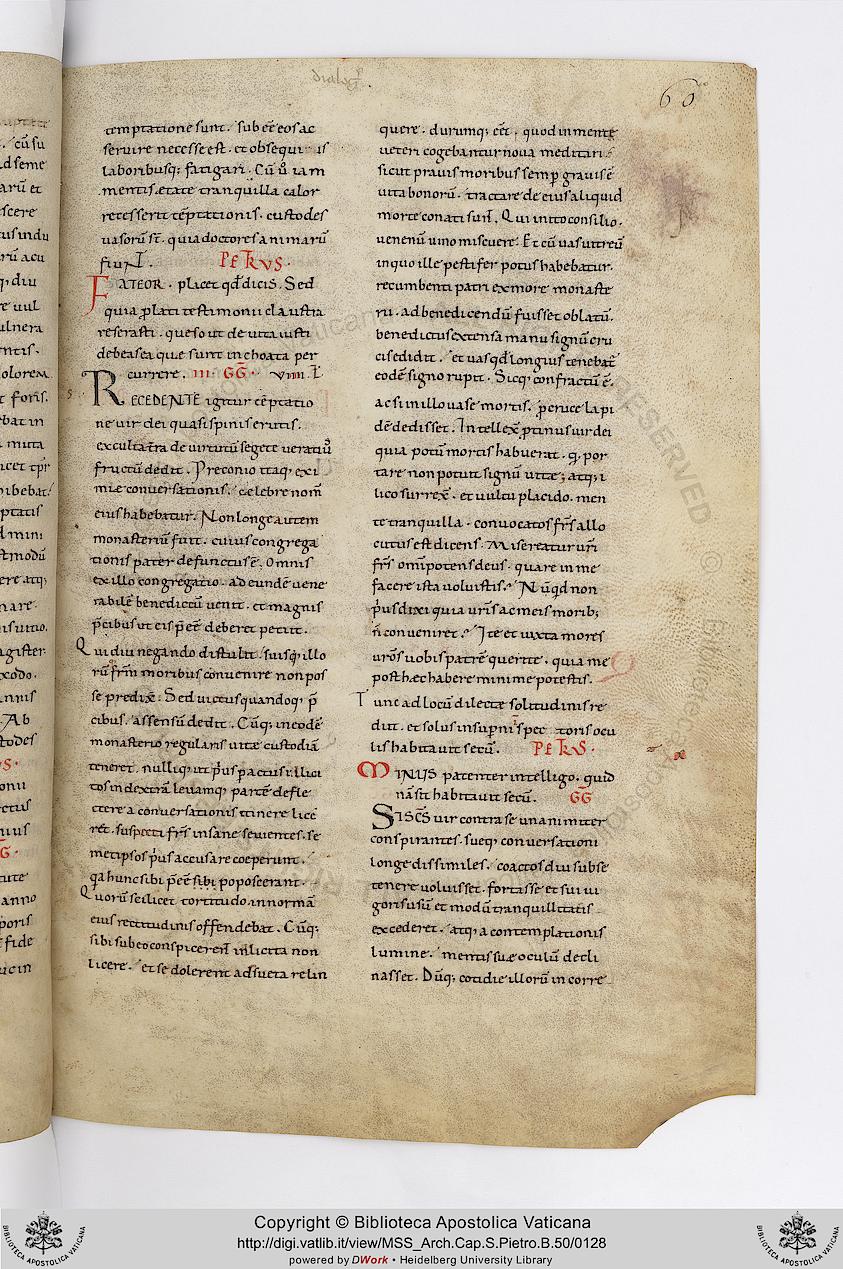 dialog
60
temptatione sunt. sub eē eos ac
seruire necesse est. et obsequi
laboribusq; fatigari. Cū u̇ iam
mentis etate tranquilla calor
recesserit tēptationis. custodes
uasorū st̄. quia doctores animarū
fiunt. PETRVS.
FATEOR. placet qd̄ dicis. Sed
quia plati testimonii claustra
reserasti. queso ut de uita iusti
debeas ea que sunt inchoata per
currere. III. GḠ. VIIII. L̄
RECEDENTE igitur tēptatio
ne uir dei quasi spinis erutis.
exculta tr̄a de uirtutū segete ueratiꝰ
fructū dedit. Preconio itaq; exi
mie conuersationis. celebre nom̄
eius habebatur. Non longe autem
monasteriū fuit. cuius congrega
tionis pater defunctus ē. Omnis
ex illo congregatio. ad eundē uene
rabilē benedictū uenit. et magnis
p̄cibus ut eis p̄eē deberet petiit.
Qui diu negando distulit. suisq; illo
rū fr̄m moribus conuenire non pos
se predix̄. Sed uictus quandoq; p̄
cibus. assensū dedit. Cūq; in eodē
monasterio regularis uitæ custodiā
teneret. nulliq; ut p̄us p actus illici
tos in dextrā leuamq; partē defle
ctere a conuersationis itinere lice
ret. suspecti fr̄s insane seuientes. se
metipsos p̄us accusare coeperunt.
qa hunc sibi p̄eē sibi poposcerant.
Quorū scilicet tortitudo in normā
eius rectitudinis offendebat. Cūq;
sibi sub eo conspicerent inlicita non
licere. et se dolerent adsueta relin
quere. durumq; eēt. quod in mente
ueteri cogebantur noua meditari.
sicut prauis moribus semp grauis ē
uita bonorū. tractare de eius aliquid
morte conati sunt. Qui inito consilio.
uenenū uino miscuere. Et cū uas uitreū
in quo ille pestifer potus habebatur.
recumbenti patri ex more monaste
rii. ad benedicendū fuisset oblatū.
benedictus extensa manu signū cru
cis edidit. et uas qd̄ longius tenebat̄
eodē signo rupit. Sicq; confractū ē.
ac si in illo uase mortis. p cruce lapi
dē dedisset. Intellex̄ ptinus uir dei
quia potū mortis habuerat. q; por
tare non potuit signū uitæ; atq; i
lico surrex̄. et uultu placido. men
te tranquilla. conuocatos fr̄s allo
cutus est dicens. Misereatur ur̄i
fr̄s omīpotens deus. quare in me
facere ista uoluistis? Nūqd non
p̄us dixi quia ur̄is ac meis morib;
n̄ conueniret? Ite et iuxta mores
ur̄os uobis patrē querite. quia me
post hæc habere minime potestis.
Tunc ad locū dilectæ solitudinis re
diit. et solus in supni spectatoris ocu
lis habitauit secū. PETRVS.
MINUS patenter intelligo. quid
nā sit habitauit secū. GḠ
SI SC̄S uir contra se unanimiter
conspirantes. sueq; conuersationi
longe dissimiles. coactos diu sub se
tenere uoluisset. fortasse et sui ui
goris usū et modū tranquillitatis
excederet. atq; a contemplationis
lumine. mentis suæ oculū decli
nasset. Dūq; cotidie illorū in corre
Copyright © Biblioteca Apostolica Vaticana
http://digi.vatlib.it/view/MSS_Arch.Cap.S.Pietro.B.50/0128
powered by DWork • Heidelberg University Library
BIBLIOTECA APOSTOLICA VATICANA
BIBLIOTECA APOSTOLICA VATICANA